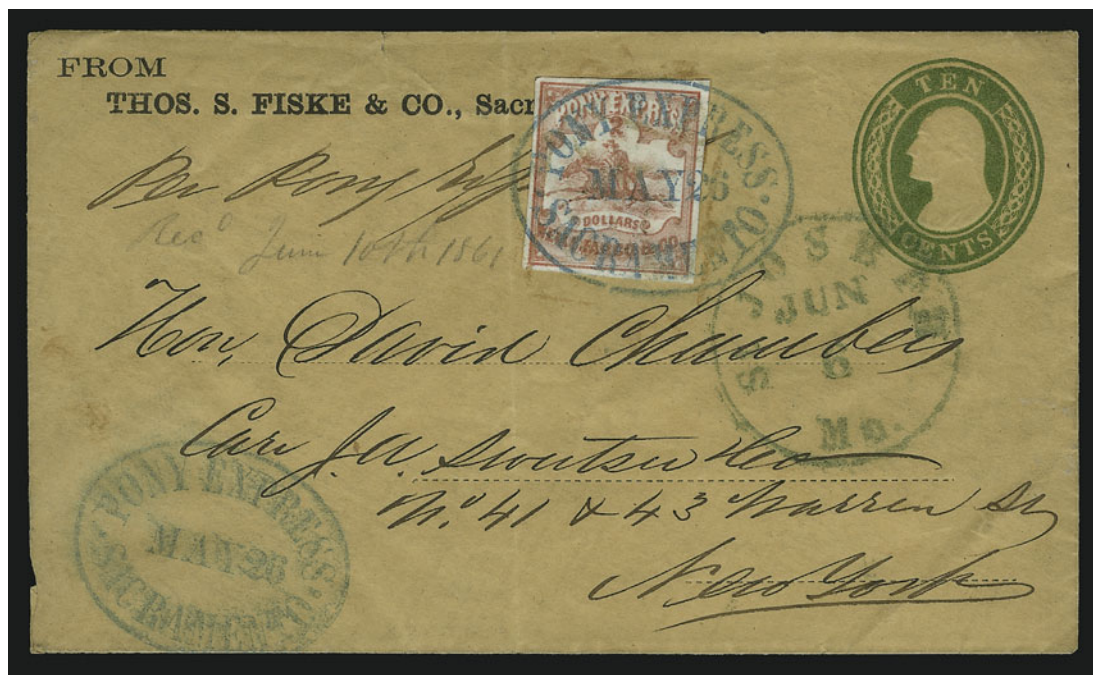 FROM
THOS. S. FISKE & CO., Sacr
TEN
CENTS
PONY EXPRESS
2
DOLLARS
WELLS FARGO & CO
PONY EXPRESS.
MAY 26
SACRAMENTO.
Per Pony Exp
Rec'd June 10th 1861
ST JOSEPH
JUN
6
Mo.
Hon, David Chambers
Care J. A. & Co
No. 41 & 43 Warren St
New York
PONY EXPRESS.
MAY 26
SACRAMENTO.